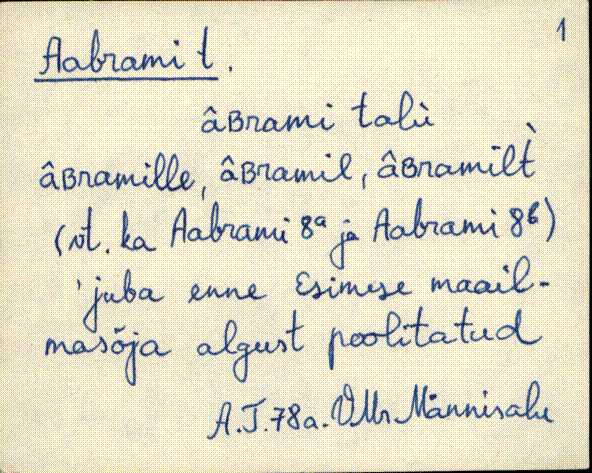 1
Aabrami t.
âʙrami talù
âʙramille, âʙramil, âʙramilt̀
(vt. ka Aabrami 8ᵃ ja Aabrami 8ᵇ)
'juba enne Esimese maail-
masõja algust poolitatud
A.J. 78a. VMr Männisalu